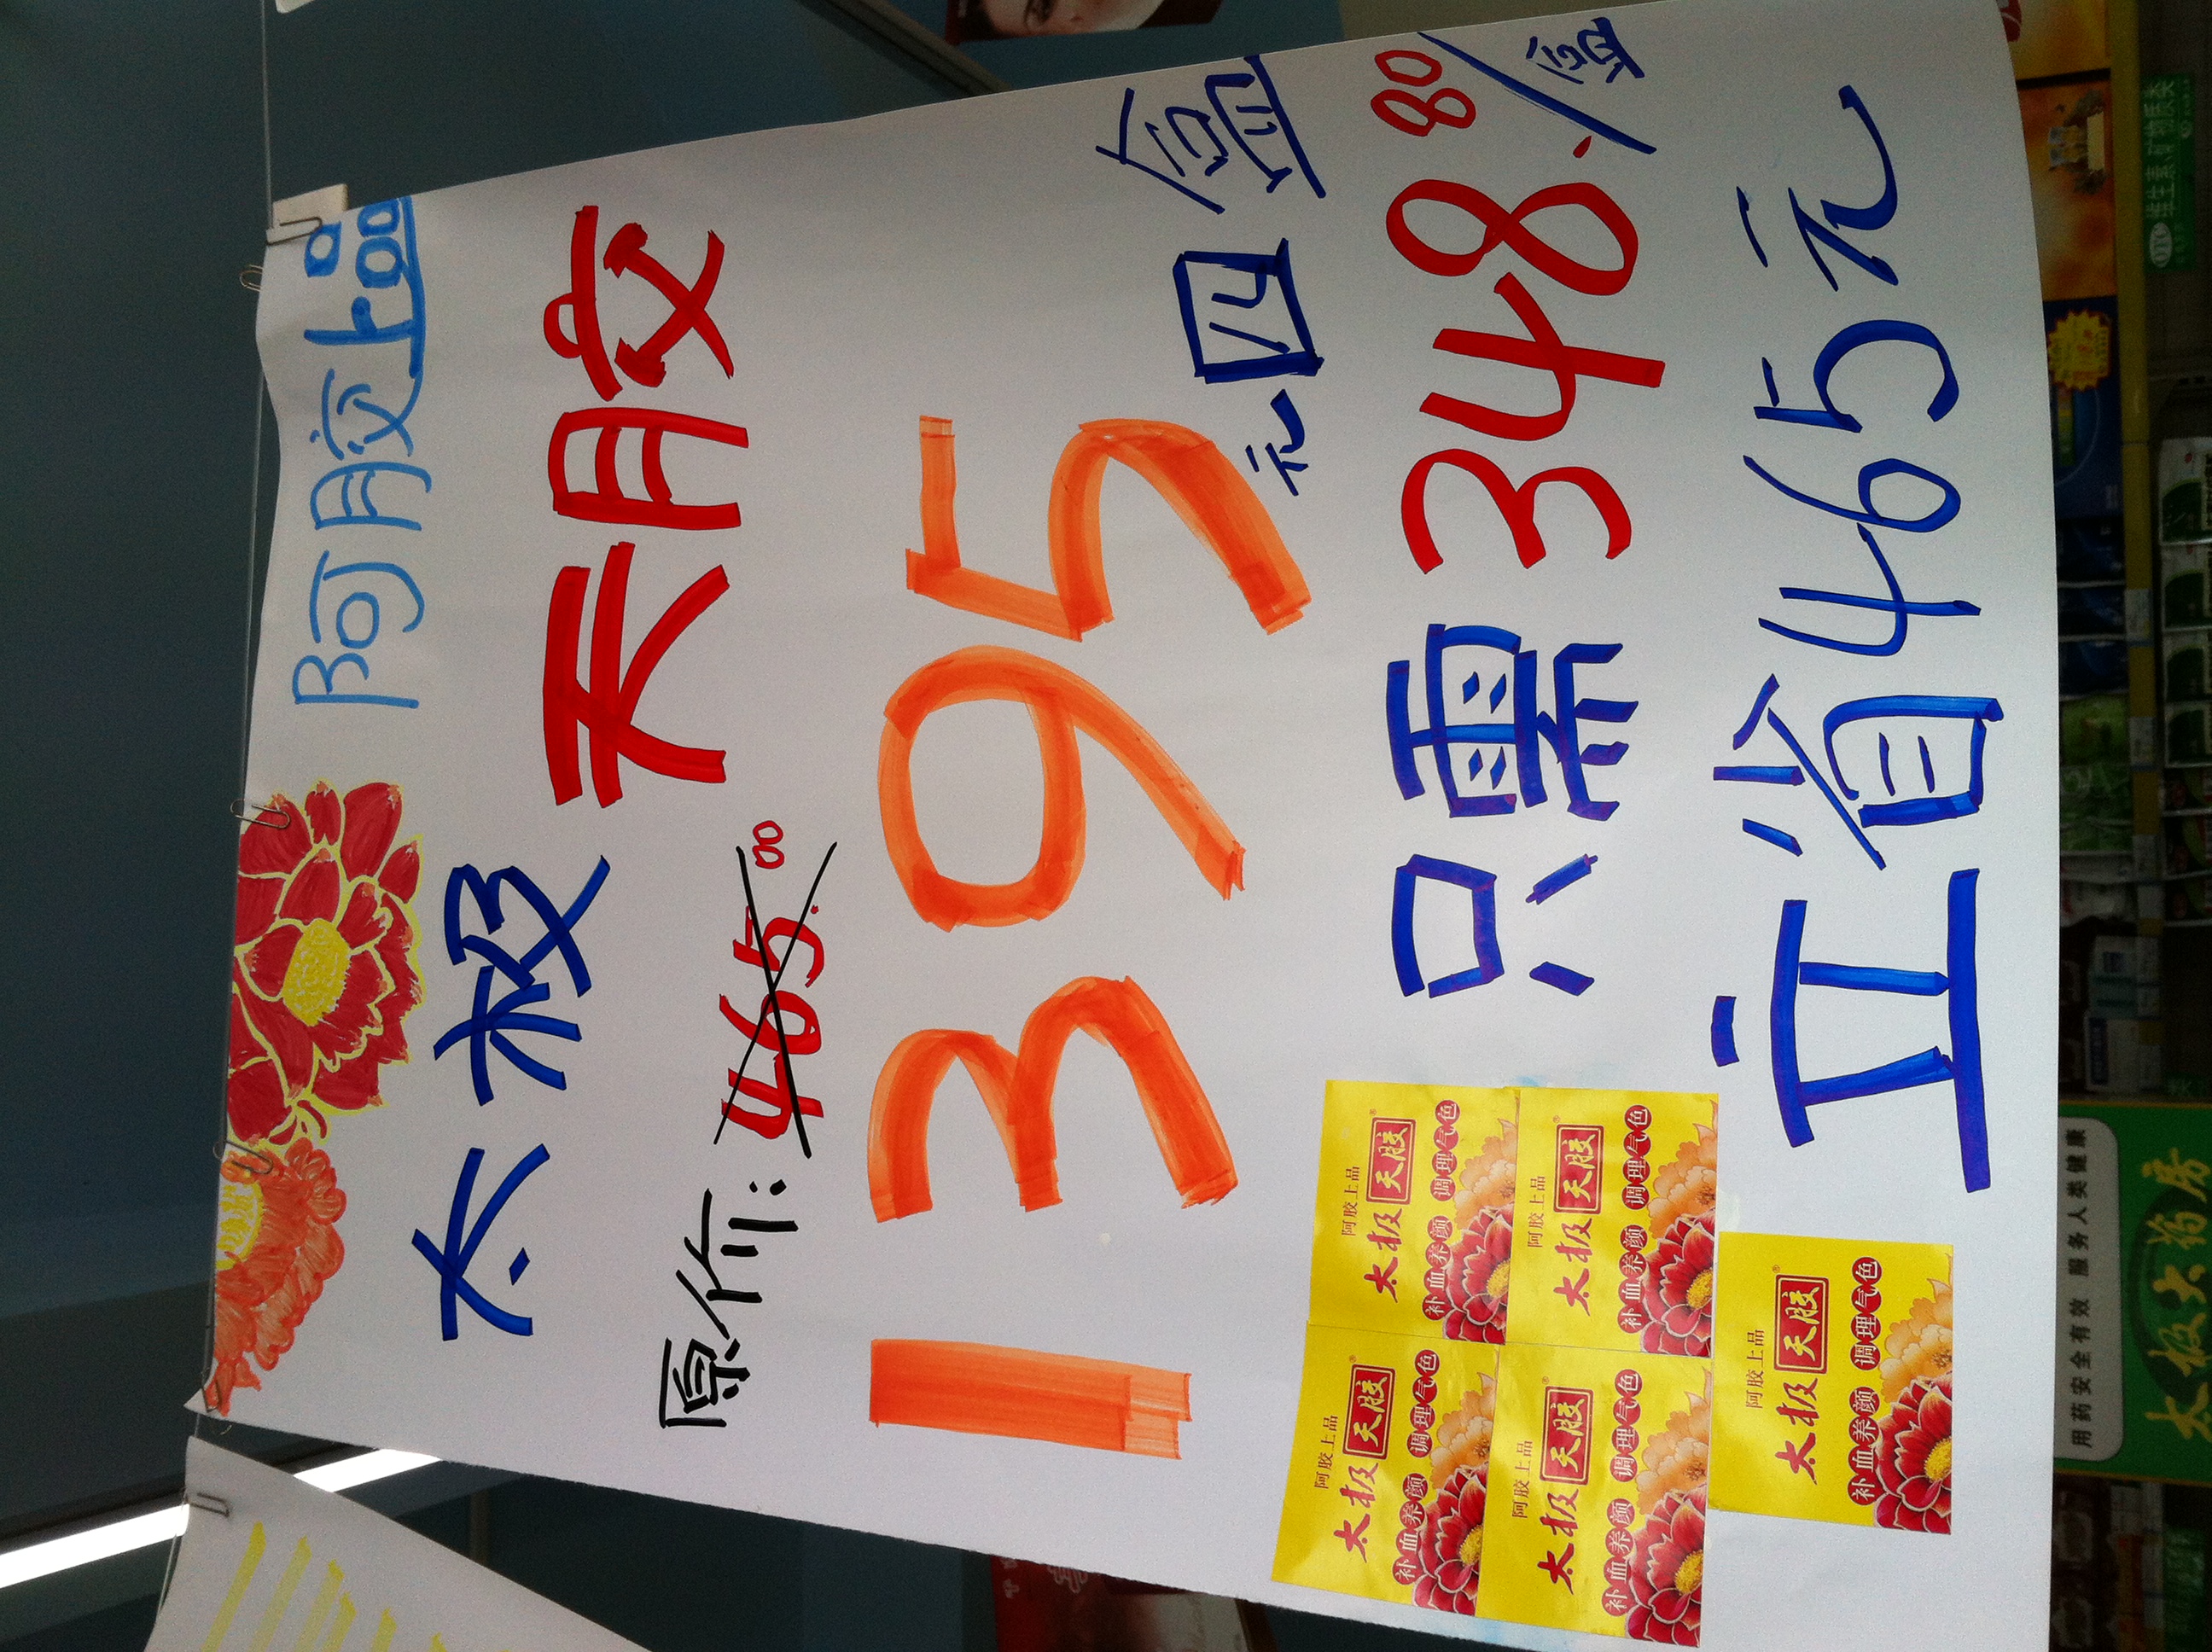 阿胶上品
太极 天胶
原价: 465.00
1395元四盒
只需348.80/盒
立省465元
阿胶上品
太极天胶
补血养颜 调理气色
阿胶上品
太极天胶
补血养颜 调理气色
阿胶上品
太极天胶
补血养颜 调理气色
阿胶上品
太极天胶
补血养颜 调理气色
阿胶上品
太极天胶
补血养颜 调理气色
用药安全有效 服务人类健康
太极大药房
OTC 维生素、矿物质类